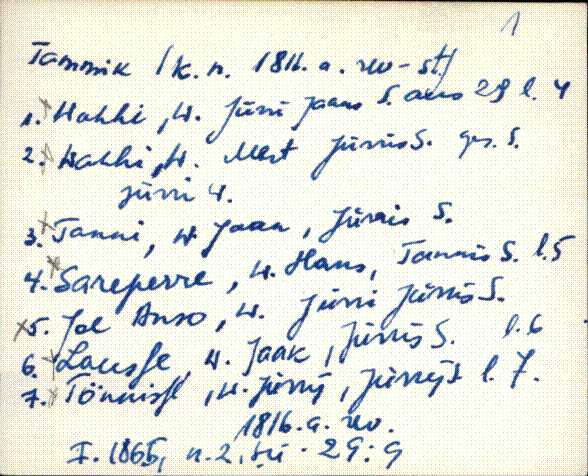 1
Tammik (k.n. 1816. a. rev-st)
1. Wahhi, W. Jürri Jaans S. aus 29 l. 4
2. Wahhi, W. Mert Jürris S. ges. S.
Jürri W.
3. Tanni, W Jaan, Jürris S.
4. Sareperre, W. Hans, Tannis S. l. 5
5. Jal Anso, W. Jürri Jürris S.
6. W. Jaak, Jürris S. l. 6
7. W. Jürry, Jürrys l. 7.
1816. a. rev.
F. 1865, n. 2, sü. 29: 9